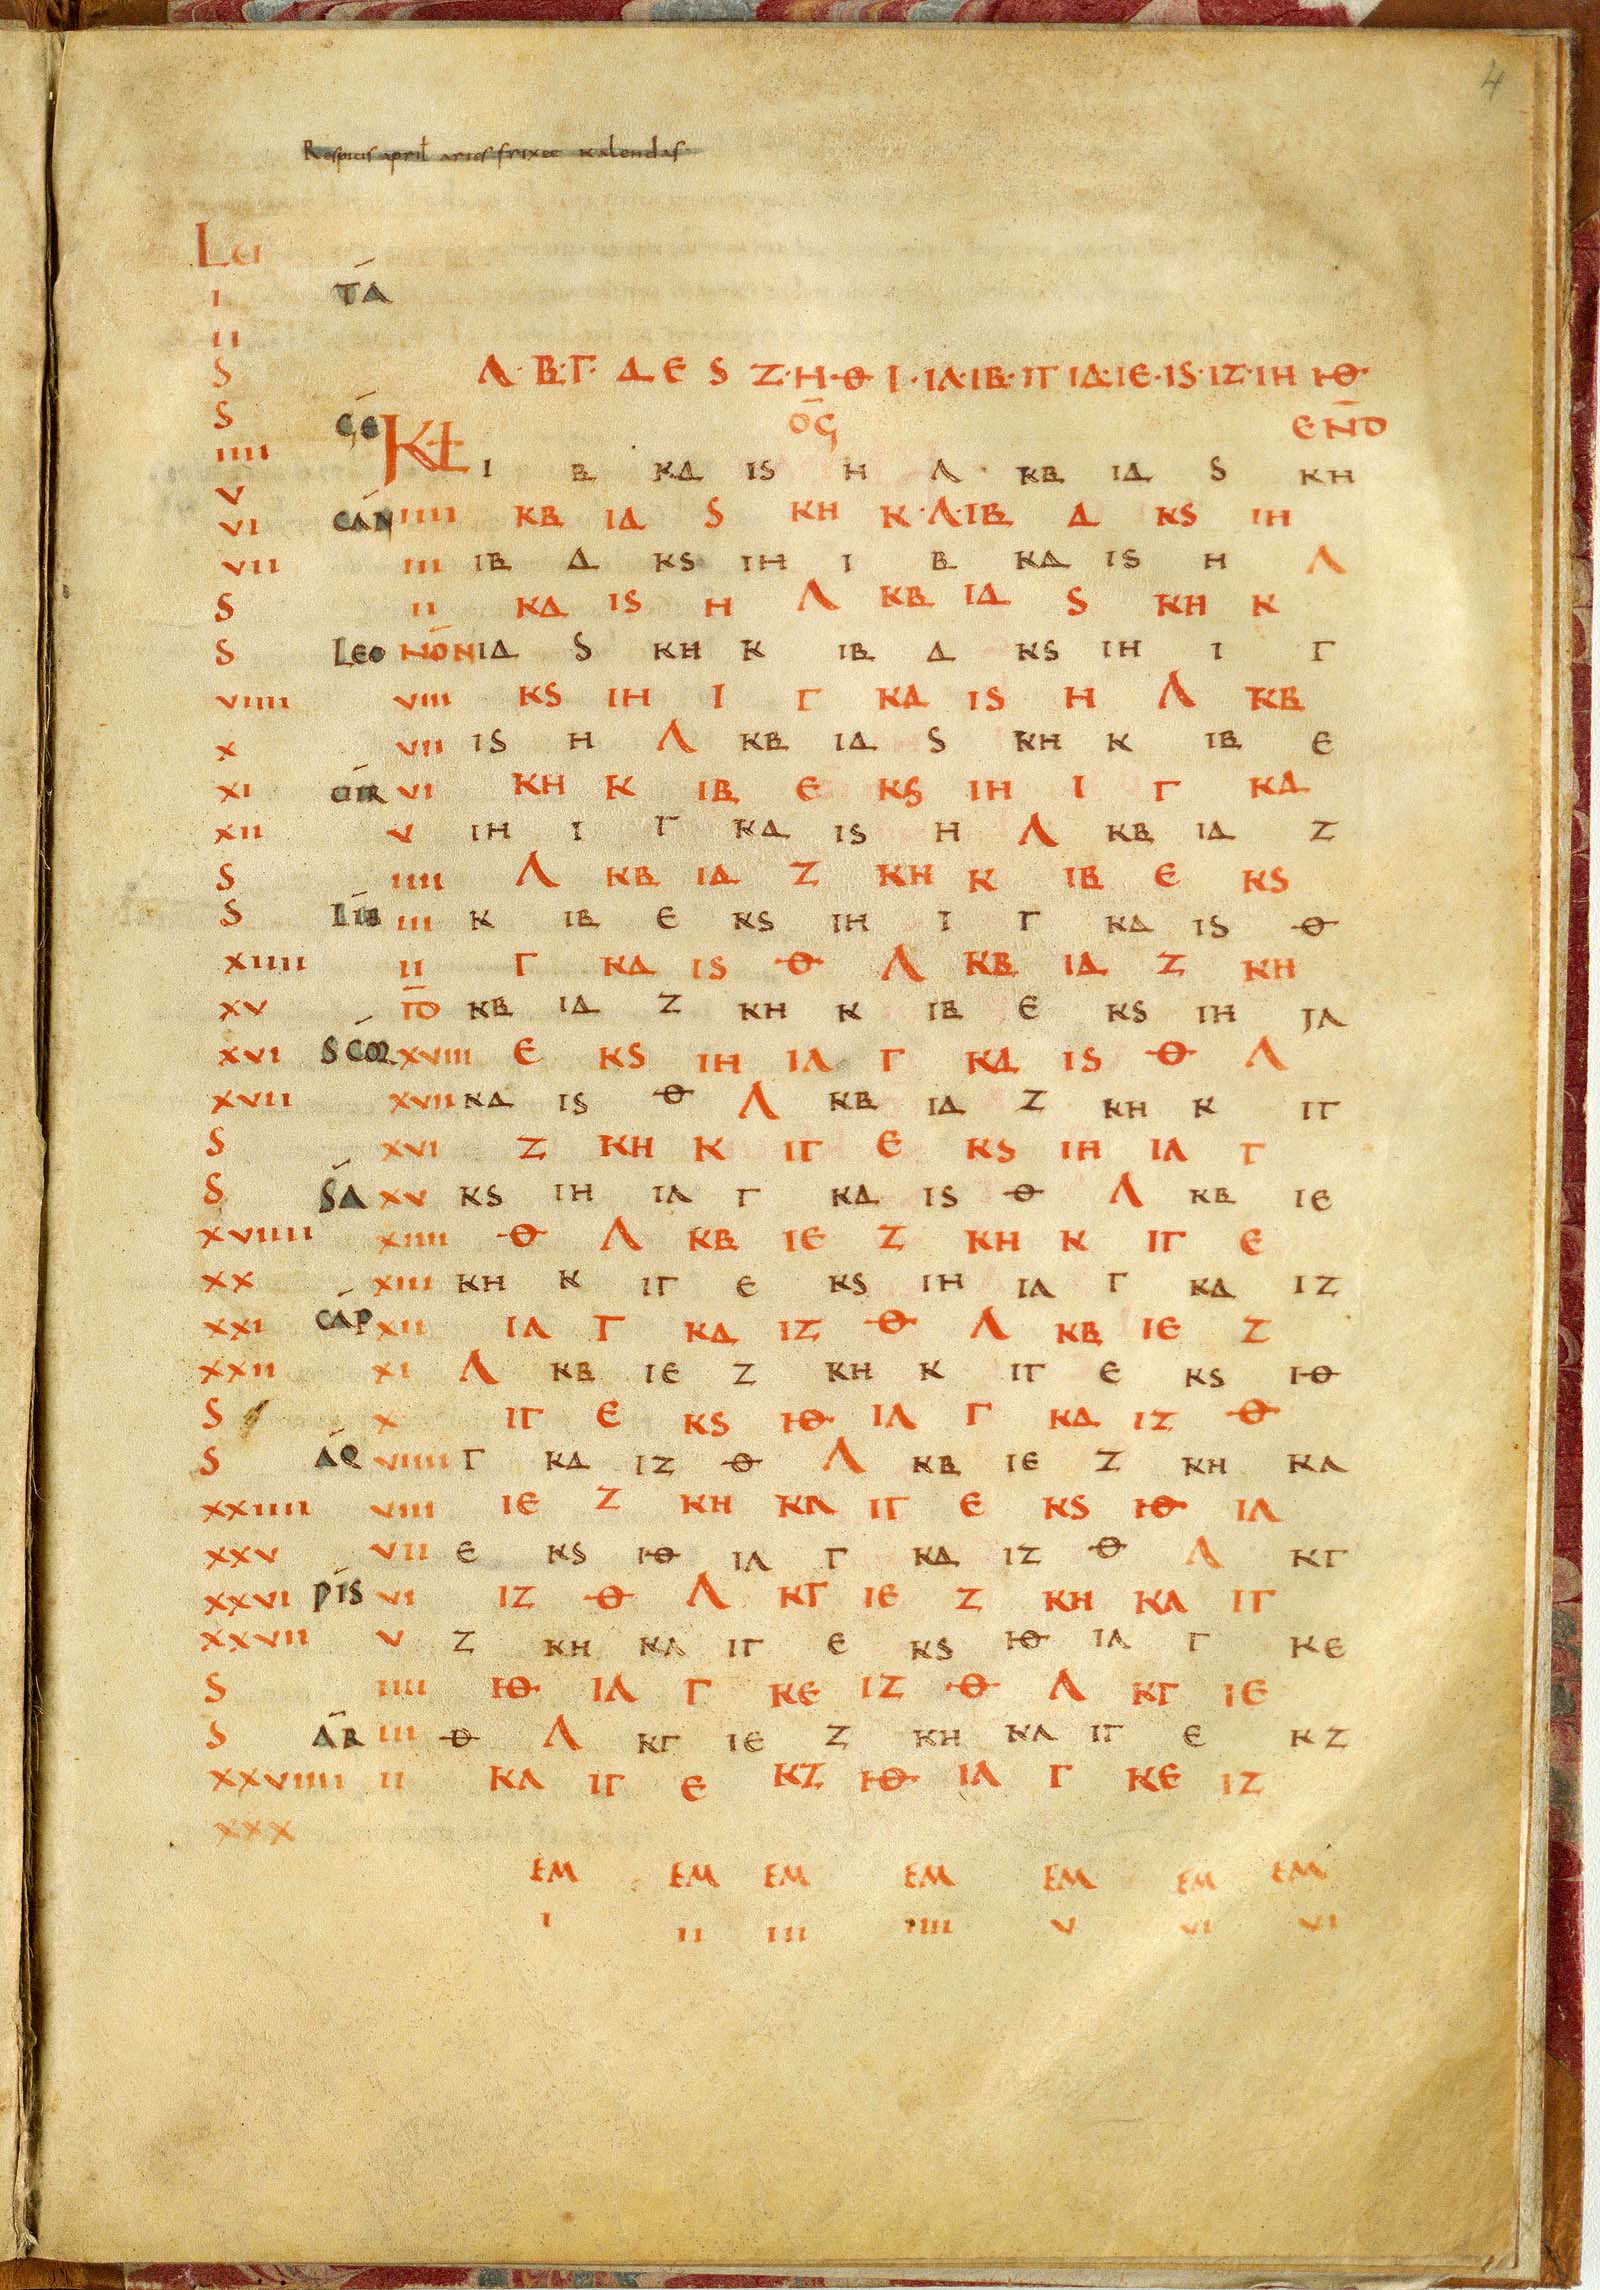 4
Respicis april aries frixee kalendas
Lu
I ΤΑ
II
S Λ·Β·Γ· Δ Ε S Ζ·Η·Θ Ι·ΙΛ·ΙΒ·ΙΓ ΙΔ·ΙΕ·ΙS·ΙΖ·ΙΗ ΙΘ·
S ϚΕ ΟϚ ΕΝΔ
IIII KL Ι Β ΚΔ ΙS Η Λ ΚΒ ΙΔ S ΚΗ
V
VI CAN IIII ΚΒ ΙΔ S ΚΗ Κ·Λ·ΙΒ Δ ΚS ΙΗ
VII III ΙΒ Δ ΚS ΙΗ Ι Β ΚΔ ΙS Η Λ
S II ΚΔ ΙS Η Λ ΚΒ ΙΔ S ΚΗ Κ
S Leo NON ΙΔ S ΚΗ Κ ΙΒ Δ ΚS ΙΗ Ι Γ
VIIII VIII ΚS ΙΗ Ι Γ ΚΔ ΙS Η Λ ΚΒ
X VII ΙS Η Λ ΚΒ ΙΔ S ΚΗ Κ ΙΒ Ε
XI UIR VI ΚΗ Κ ΙΒ Ε ΚS ΙΗ Ι Γ ΚΔ
XII V ΙΗ Ι Γ ΚΔ ΙS Η Λ ΚΒ ΙΔ Ζ
S IIII Λ ΚΒ ΙΔ Ζ ΚΗ Κ ΙΒ Ε ΚS
S LIB III Κ ΙΒ Ε ΚS ΙΗ Ι Γ ΚΔ ΙS Θ
XIIII II Γ ΚΔ ΙS Θ Λ ΚΒ ΙΔ Ζ ΚΗ
XV ID ΚΒ ΙΔ Ζ ΚΗ Κ ΙΒ Ε ΚS ΙΗ ΙΛ
XVI SCOR XVIII Ε ΚS ΙΗ ΙΛ Γ ΚΔ ΙS Θ Λ
XVII XVII ΚΔ ΙS Θ Λ ΚΒ ΙΔ Ζ ΚΗ Κ ΙΓ
S XVI Ζ ΚΗ Κ ΙΓ Ε ΚS ΙΗ ΙΛ Γ
S SA XV ΚS ΙΗ ΙΛ Γ ΚΔ ΙS Θ Λ ΚΒ ΙΕ
XVIIII XIIII Θ Λ ΚΒ ΙΕ Ζ ΚΗ Κ ΙΓ Ε
XX XIII ΚΗ Κ ΙΓ Ε ΚS ΙΗ ΙΛ Γ ΚΔ ΙΖ
XXI CAP XII ΙΛ Γ ΚΔ ΙΖ Θ Λ ΚΒ ΙΕ Ζ
XXII XI Λ ΚΒ ΙΕ Ζ ΚΗ Κ ΙΓ Ε ΚS ΙΘ
S X ΙΓ Ε ΚS ΙΘ ΙΛ Γ ΚΔ ΙΖ Θ
S AQ VIIII Γ ΚΔ ΙΖ Θ Λ ΚΒ ΙΕ Ζ ΚΗ ΚΛ
XXIIII VIII ΙΕ Ζ ΚΗ ΚΛ ΙΓ Ε ΚS ΙΘ ΙΛ
XXV VII Ε ΚS ΙΘ ΙΛ Γ ΚΔ ΙΖ Θ Λ ΚΓ
XXVI PIS VI ΙΖ Θ Λ ΚΓ ΙΕ Ζ ΚΗ ΚΛ ΙΓ
XXVII V Ζ ΚΗ ΚΛ ΙΓ Ε ΚS ΙΘ ΙΛ Γ ΚΕ
S IIII ΙΘ ΙΛ Γ ΚΕ ΙΖ Θ Λ ΚΓ ΙΕ
S AR III Θ Λ ΚΓ ΙΕ Ζ ΚΗ ΚΛ ΙΓ Ε ΚΖ
XXVIIII II ΚΛ ΙΓ Ε ΚΖ ΙΘ ΙΛ Γ ΚΕ ΙΖ
XXX
EM EM EM EM EM EM EM
I II III IIII V VI VI